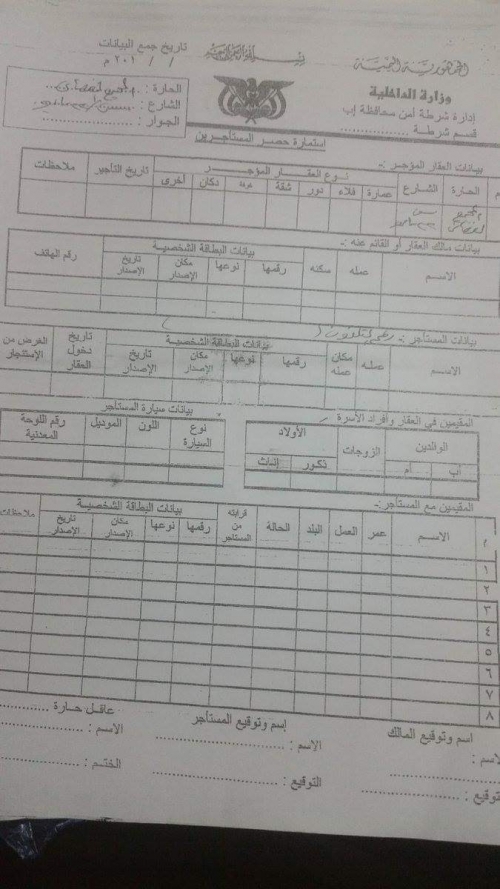 بسم الله الرحمن الرحيم
تاريخ جمع البيانات
/ / ٢٠١ م
الجمهورية اليمنية
وزارة الداخلية
إدارة شرطة أمن محافظة إب
قسم شرطة ..................
الحارة :
الشارع :
الجوار : ..................
استمارة حصر المستأجرين
بيانات العقار المؤجر :-
م الحارة الشارع نوع العقار المؤجر تاريخ التأجير ملاحظات
عمارة فلاء دور شقة غرفة دكان أخرى
بيانات مالك العقار أو القائم عنه :-
الاسم عمله سكنه بيانات البطاقة الشخصية رقم الهاتف
رقمها نوعها مكان الإصدار تاريخ الإصدار
بيانات المستأجر :- ( )
الاسم عمله مكان عمله بيانات البطاقة الشخصية تاريخ دخول العقار الغرض من الإستئجار
رقمها نوعها مكان الإصدار تاريخ الإصدار
المقيمين في العقار وأفراد الأسرة
الوالدين الزوجات الأولاد
أب أم ذكور إناث
بيانات سيارة المستأجر
نوع السيارة اللون الموديل رقم اللوحة المعدنية
المقيمين مع المستأجر :-
م الاسم عمر العمل البلد الحالة قرابته من المستاجر بيانات البطاقة الشخصية ملاحظات
رقمها نوعها مكان الإصدار تاريخ الإصدار
١
٢
٣
٤
٥
٦
٧
٨
اسم وتوقيع المالك
الاسم :
التوقيع :
إسم وتوقيع المستأجر
الاسم :
التوقيع :
عاقل حارة
الاسم :
الختم :